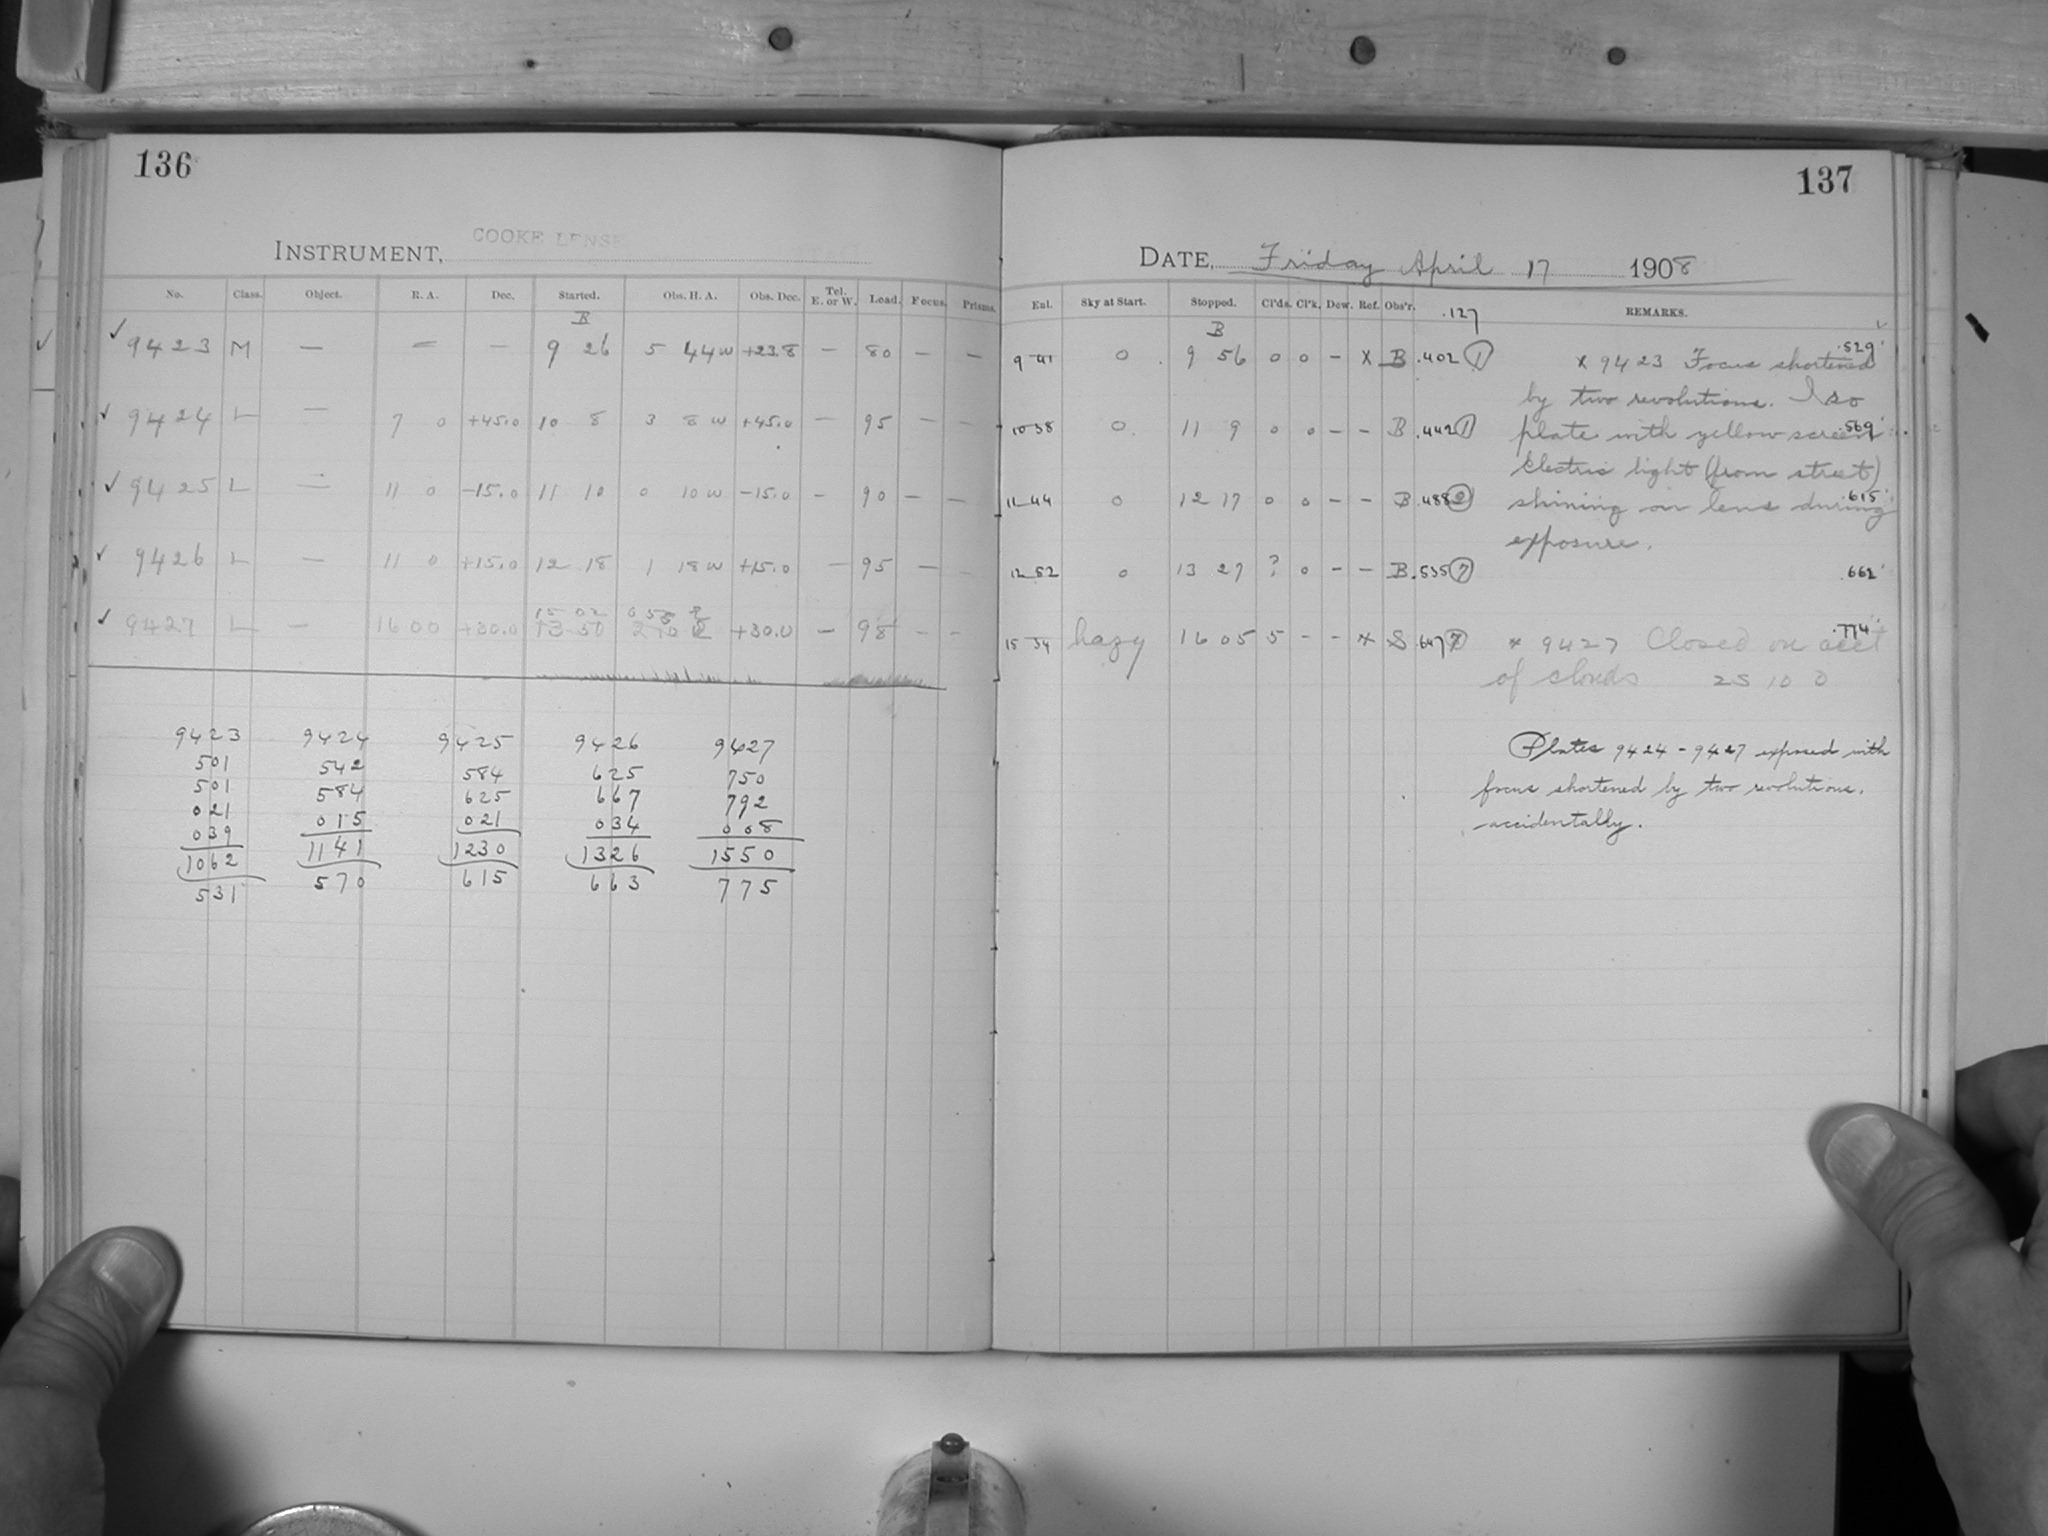 136
INSTRUMENT, COOKE LENSE
No. Class. Object. R. A. Dec. Started. Obs. H. A. Obs. Dec. Tel. E. or W. Load. Focus. Prisms.
B
✓ 9423 M — = — 9 26 5 44w +23.8 — 80 — —
✓ 9424 L — 7 0 +45.0 10 8 3 8 w +45.0 — 95 — —
✓ 9425 L — 11 0 -15.0 11 10 0 10 w -15.0 — 90 — —
✓ 9426 L — 11 0 +15.0 12 18 1 18 w +15.0 — 95 — —
15 02
✓ 9427 L — 16 00 +30.0 13 50 +30.0 — 98 — —
9423 9424 9425 9426 9427
501 542 584 625 750
501 584 625 667 792
021 015 021 034 008
039 1141 1230 1326 1550
1062 570 615 663 775
531
137
DATE, Friday April 17 1908
Ext. Sky at Start. Stopped. Cl'ds. Cl'k. Dew. Ref. Obs'r. .127 REMARKS.
B
9 41 0 9 56 0 0 — x B .402 1 .529
10 38 0 11 9 0 0 — — B .442 1 .569
11 44 0 12 17 0 0 — — B .488 2 .615
12 52 0 13 27 ? 0 — — B .535 7 .662
15 34 hazy 16 05 5 — — x S .647 7 .774
x 9423 Focus shortened
by two revolutions. Iso
plate with yellow screen
Electric light (from street)
shining on lens during
exposure.
x 9427 Closed on acct
of clouds 25 10 0
Plates 9424 - 9427 exposed with
focus shortened by two revolutions,
accidentally.